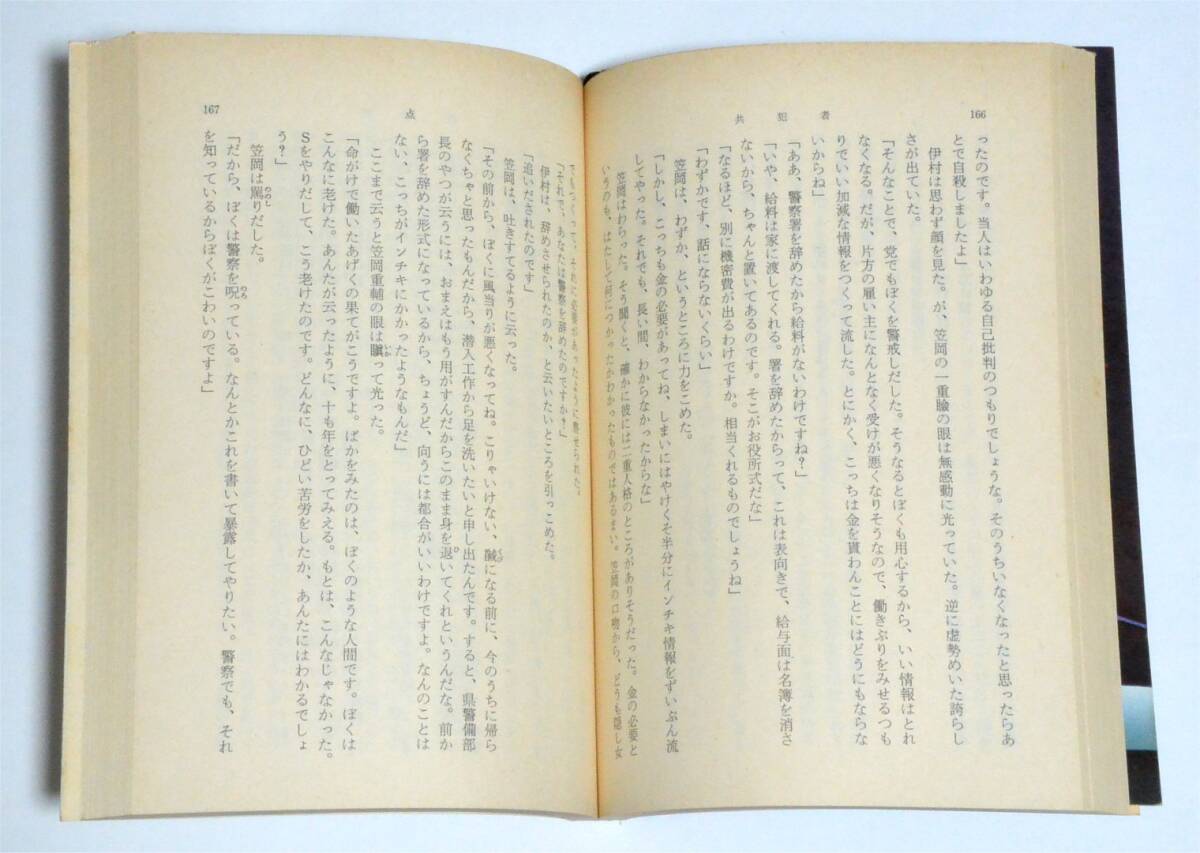 166
共犯者
ったのです。当人はいわゆる自己批判のつもりでしょうな。そのうちいなくなったと思ったらあ
とで自殺しましたよ」
伊村は思わず顔を見た。が、笠岡の一重瞼の眼は無感動に光っていた。逆に虚勢めいた誇らし
さが出ていた。
「そんなことで、党でもぼくを警戒しだした。そうなるとぼくも用心するから、いい情報はとれ
なくなる。だが、片方の雇い主になんとなく受けが悪くなりそうなので、働きぶりをみせるつも
りでいい加減な情報をつくって流した。とにかく、こっちは金を貰わんことにはどうにもならな
いからね」
「ああ、警察署を辞めたから給料がないわけですね?」
「いや、給料は家に渡してくれる。署を辞めたからって、これは表向きで、給与面は名簿を消さ
ないから、ちゃんと置いてあるのです。そこがお役所式だな」
「なるほど、別に機密費が出るわけですか。相当くれるものでしょうね」
「わずかです、話にならないくらい」
笠岡は、わずか、というところに力をこめた。
「しかし、こっちも金の必要があってね、しまいにはやけくそ半分にインチキ情報をずいぶん流
してやった。それでも、長い間、わからなかったからな」
笠岡はわらった。そう聞くと、確かに彼には二重人格のところがありそうだった。金の必要と
いうのも、はたして何につかったかわかったものではあるまい。笠岡の口吻から、どうも隠し女
167
点
でもつくって、それに必要があったように察せられた。
「それで、あなたは警察を辞めたのですか?」
伊村は、辞めさせられたのか、と云いたいところを引っこめた。
「追いだされたのです」
笠岡は、吐きすてるように云った。
「その前から、ぼくに風当りが悪くなってね。こりゃいけない、馘になる前に、今のうちに帰ら
なくちゃと思ったもんだから、潜入工作から足を洗いたいと申し出たんです。すると、県警備部
長のやつが云うには、おまえはもう用がすんだからこのまま身を退いてくれというんだな。前か
ら署を辞めた形式になっているから、ちょうど、向うには都合がいいわけですよ。なんのことは
ない、こっちがインチキにかかったようなもんだ」
ここまで云うと笠岡重輔の眼は瞋って光った。
「命がけで働いたあげくの果てがこうですよ。ばかをみたのは、ぼくのような人間です。ぼくは
こんなに老けた。あんたが云ったように、十も年をとってみえる。もとは、こんなじゃなかった。
Sをやりだして、こう老けたのです。どんなに、ひどい苦労をしたか、あんたにはわかるでしょ
う?」
笠岡は罵りだした。
「だから、ぼくは警察を呪っている。なんとかこれを書いて暴露してやりたい。警察でも、それ
を知っているからぼくがこわいのですよ」